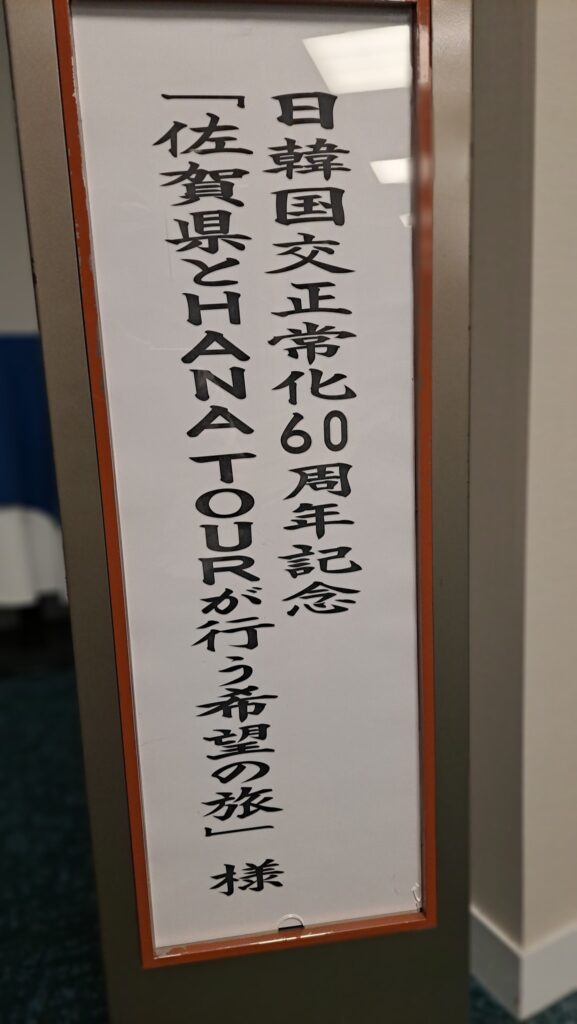 日韓国交正常化60周年記念
「佐賀県とHANA TOURが行う希望の旅」様